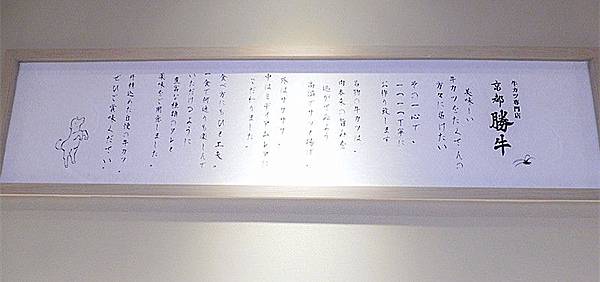 牛カツ専門店
京都 勝牛
美味しい
牛カツをたくさんの
方々に届けたい
その一心で、
一つ一つ丁寧に
お作り致します
名物の牛カツは、
肉本来の旨みを
逃がさぬよう
高温でサクッと揚げ、
外はサクサク
中はミディアムレアに
こだわりました。
食べ方にもひと工夫。
一食で何通りも楽しんで
いただけるように
豊富な種類のタレ、
薬味をご用意しました。
丹精込めた自慢の牛カツ、
ぜひご賞味くださいませ。